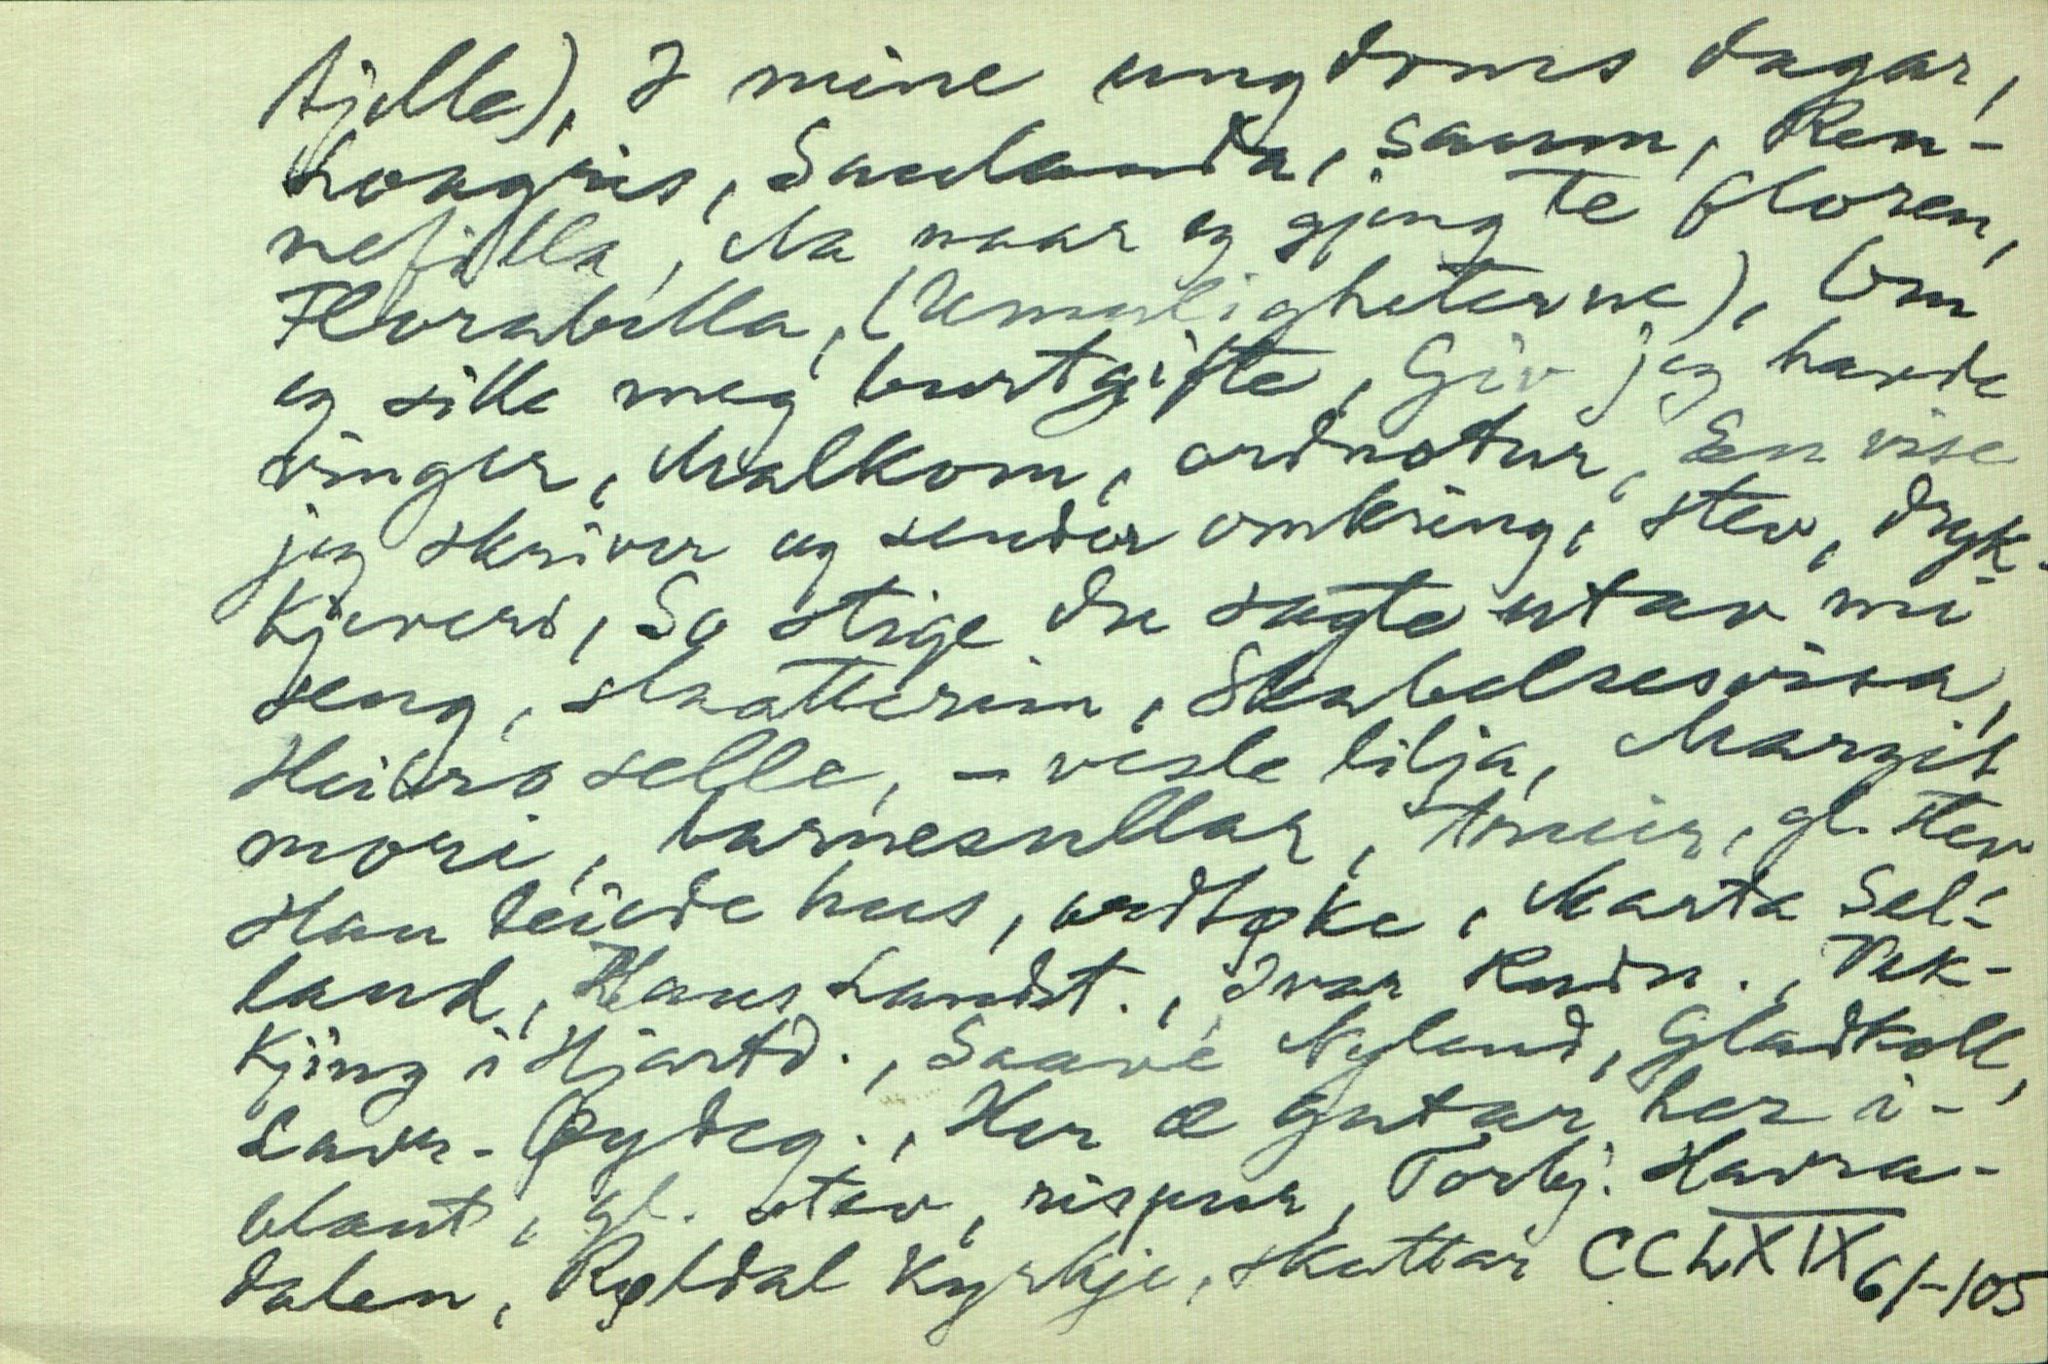 fjelle), I mine ungdoms dagar,
Loagris, Saulanda, Saum, Ren-
nefilla, Aa naar eg gjeng te floren,
Florabilla, (Umuligheterne), Om
eg sille meg burtgifte, Giv jeg havde
vinger, Malkom, ordnotur, En vise
jeg skriver og sender omkring, stev, dryk-
kjeveri, So stige du sagte utav mi
seng, slaatterim, Skabelsesvisa,
Heibro selle, - vesle lilja, Margit
mori, barnesullar, gl. stev
Han leiede hus, ordtøke, Marta Sel-
land, Hans Landst., Ivar Rudn.,
kjing i Hjartd., Saave Nyland, Gladkoll,
Lavr. Øydeg., Her æ gutar her i-
blant, gl. stev, rispur, Torbj. Havra-
dalen, Røldal kyrkje, skattar CCLXIX 61-105